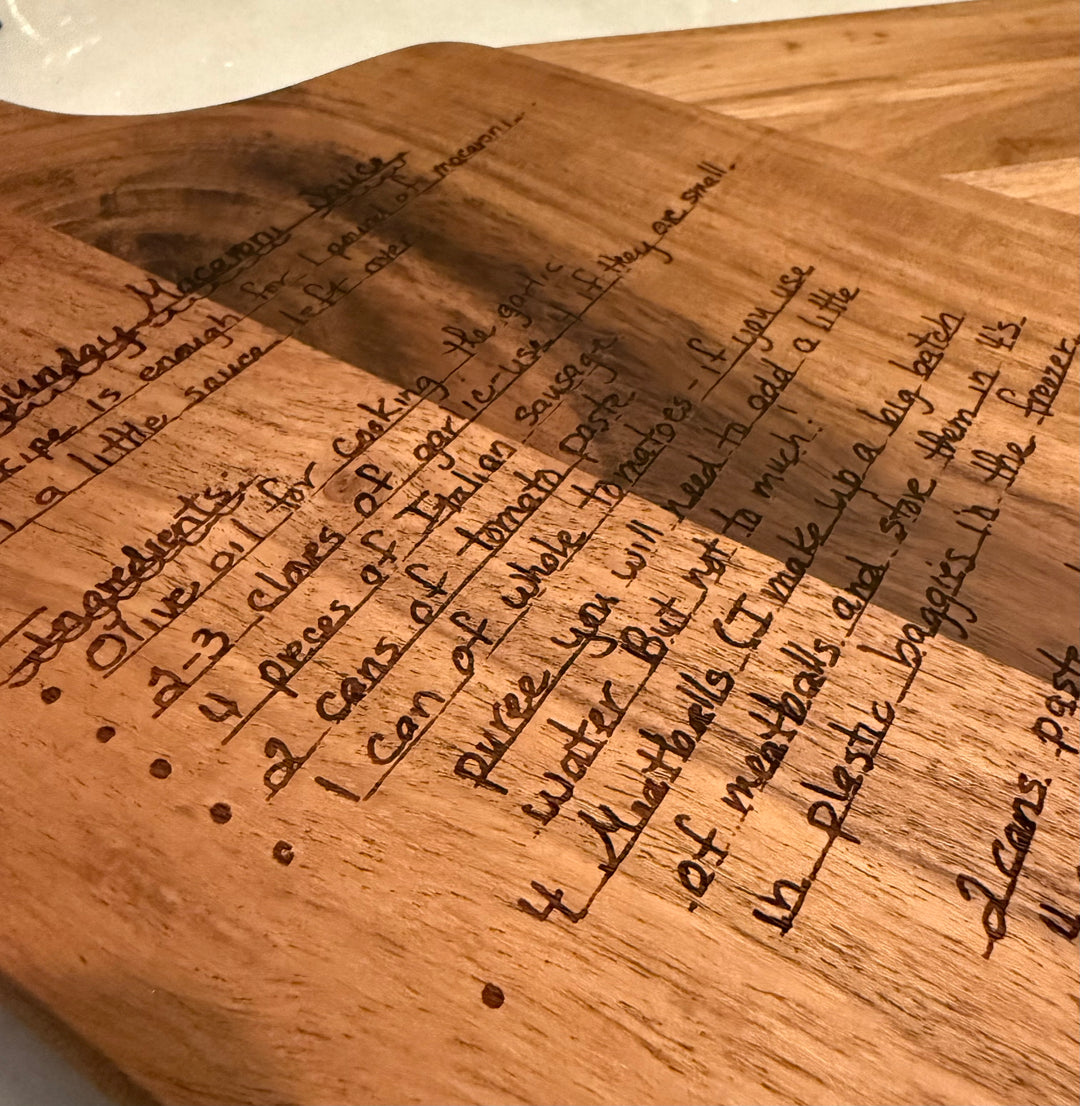 Sunday Macaroni Sauce
is enough for 1 pound of macaroni.
a little sauce left over
Ingredients:
• Olive oil for cooking the garlic
• 2-3 cloves of garlic-use 4 if they are small.
• 4 pieces of Italian sausage
• 2 cans of tomato paste
• 1 can of whole tomatoes - if you use
puree you will need to add a little
water But not to much!
• 4 Meatballs (I make up a big batch
of meatballs and store them in 4's.
in plastic baggies in the freezer.
2 cans. paste
4